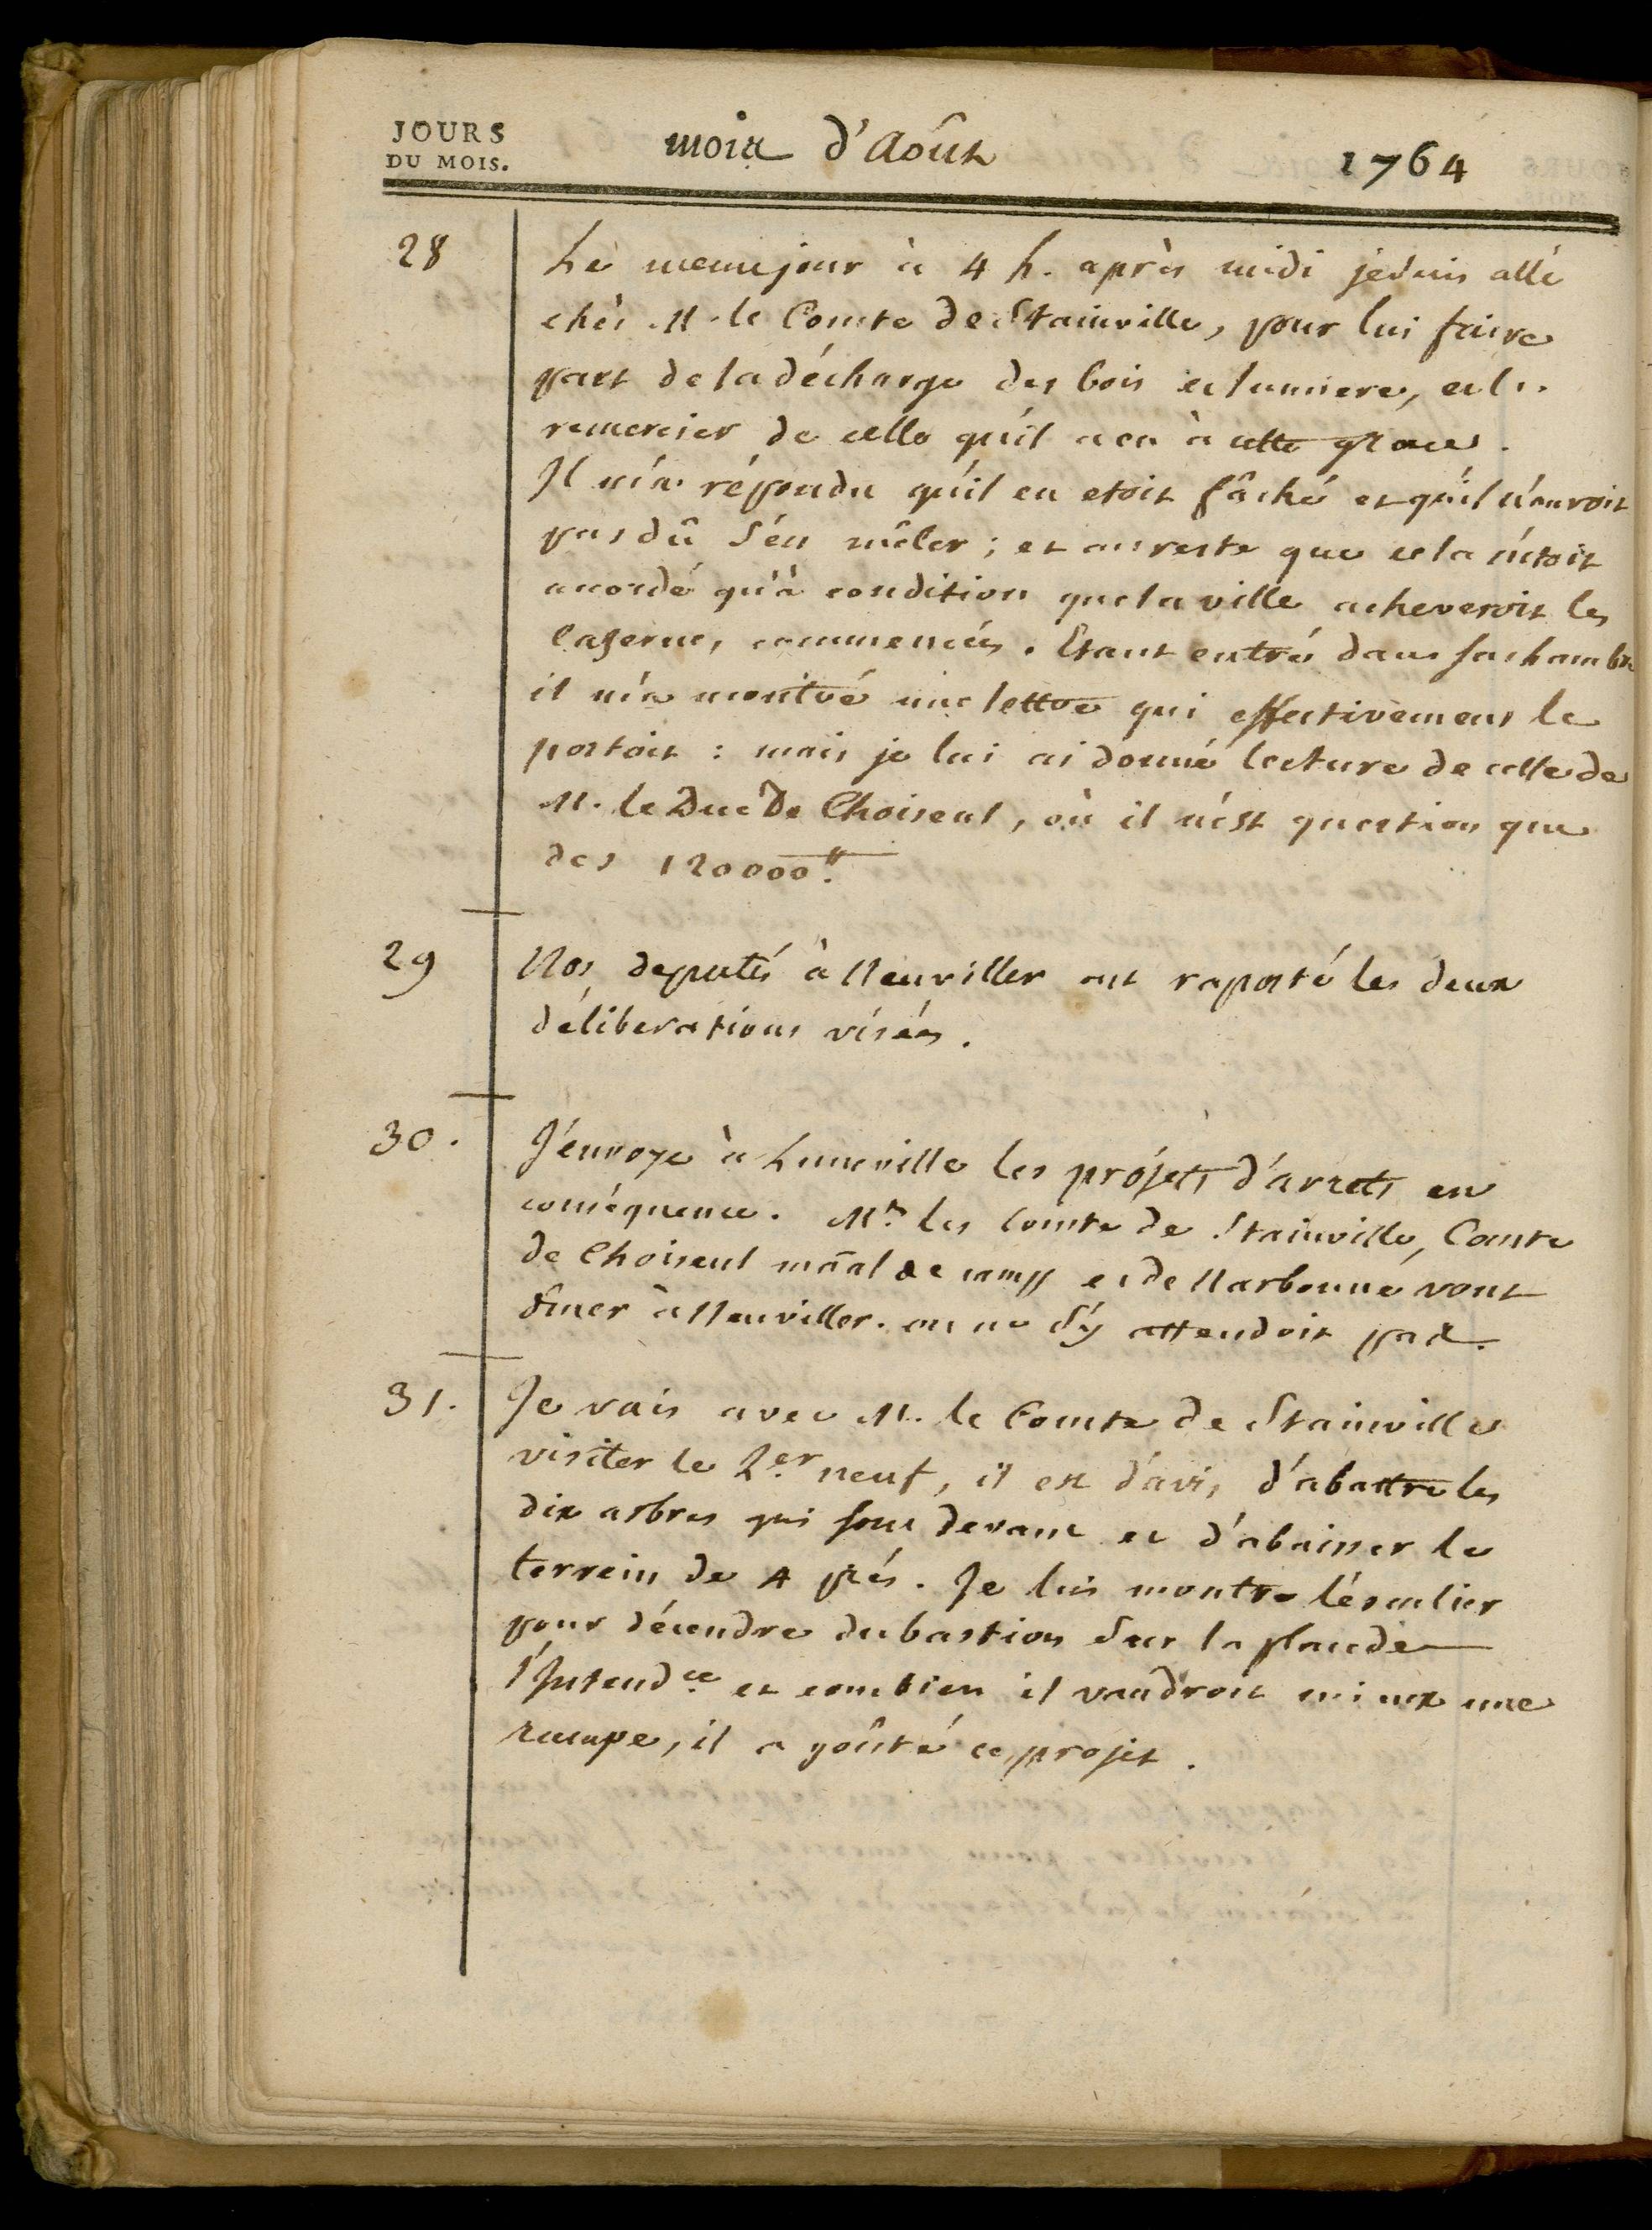 JOURS
DU MOIS.
mois d'Août
1764
28
Le meme jour à 4 h. après midi je suis allé
chès M. le Comte de Stainville, pour lui faire
part de la décharge des bois et lumiere, et le
remercier de celle qu'il a eu à cette grace.
Il m'a répondu qu'il en etoit fâché et qu'il n'auroit
pas dû s'en mêler ; et au reste que cela n'étoit
accordé qu'à condition que la ville acheveroit les
Cazernes commencées. Etant entré dans sa chambre
il m'a montré une lettre qui effectivement le
portoit : mais je lui ai donné lecture de celle de
M. le Duc De Choiseul, où il n'est question que
des 120000 ₶.
29
Nos deputés à Neuviller ont raporté les deux
déliberations visées.
30.
J'envoye à Luneville les projets d'arrets en
conséquence. Mrs. les Comte de Stainville, Comte
de Choiseul mãal de camp et de Narbonne vont
dîner à Neuviller. on ne s'y attendoit pas.
31.
Je vais avec M. le Comte de Stainville
visiter le 2er. neuf, il est d'avis d'abattre les
dix arbres qui sont devant et d'abaisser le
terrein de 4 piés. Je lui montre l'escalier
pour décendre du bastion sur la place de
l'Intendce. et combien il vaudroit mieux une
rampe, il a goûté ce projet.